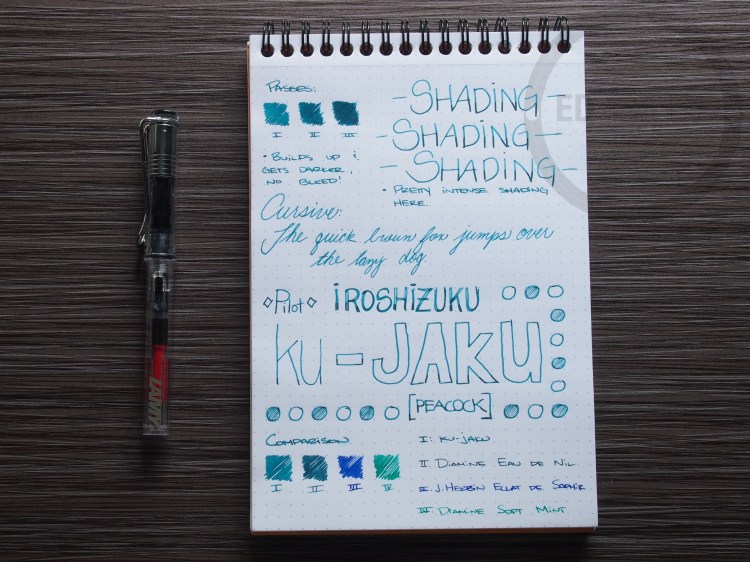 Passes:
I II III
• Builds up &
gets darker,
no bleed!
-Shading-
-Shading-
-Shading-
• Pretty intense shading
here
Cursive:
The quick brown fox jumps over
the lazy dog
Pilot IROSHIZUKU
ku-JAKU
[PEACOCK]
Comparison
I II III IV
I: ku-jaku
II: Diamine Eau de Nil
III: J. Herbin Eclat de Saphir
IV: Diamine Soft Mint
LAMY
ED